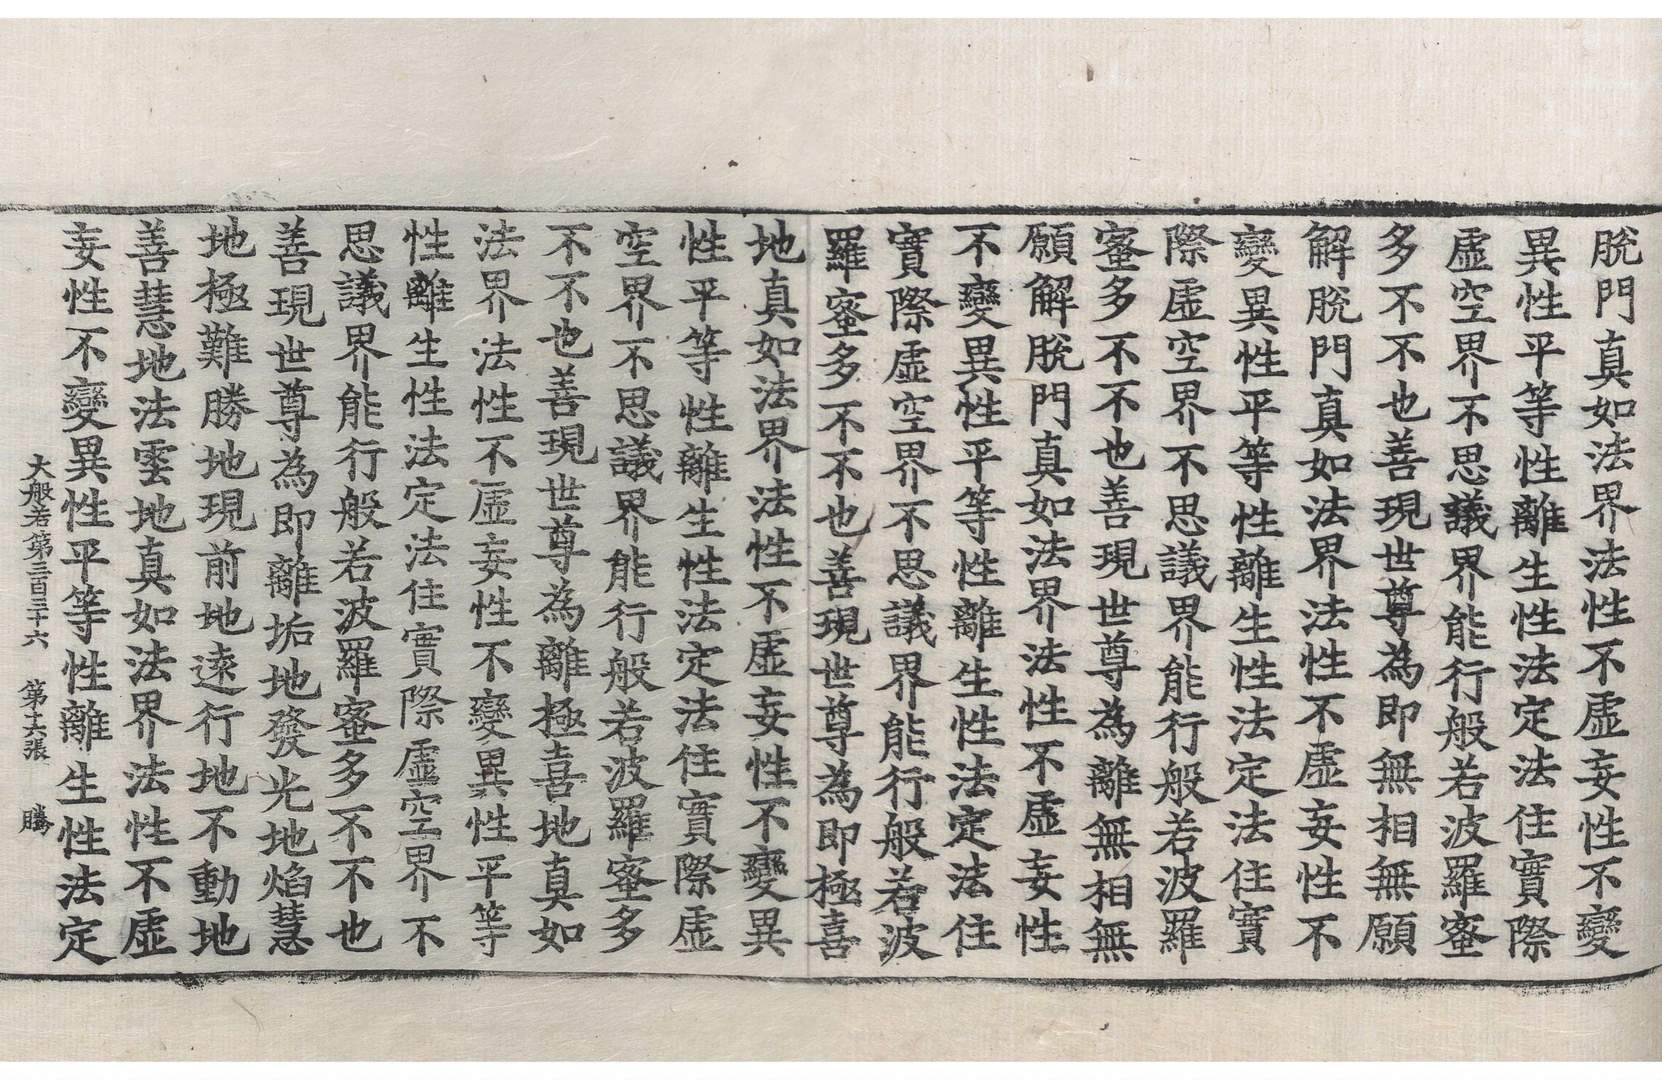 脫門真如法界法性不虛妄性不變
異性平等性離生性法定法住實際
虛空界不思議界能行般若波羅蜜
多不不也善現世尊為即無相無願
解脫門真如法界法性不虛妄性不
變異性平等性離生性法定法住實
際虛空界不思議界能行般若波羅
蜜多不不也善現世尊為離無相無
願解脫門真如法界法性不虛妄性
不變異性平等性離生性法定法住
實際虛空界不思議界能行般若波
羅蜜多不不也善現世尊為即極喜
地真如法界法性不虛妄性不變異
性平等性離生性法定法住實際虛
空界不思議界能行般若波羅蜜多
不不也善現世尊為離極喜地真如
法界法性不虛妄性不變異性平等
性離生性法定法住實際虛空界不
思議界能行般若波羅蜜多不不也
善現世尊為即離垢地發光地焰慧
地極難勝地現前地遠行地不動地
善慧地法雲地真如法界法性不虛
妄性不變異性平等性離生性法定
大般若第三百三十六 第十六張 騰